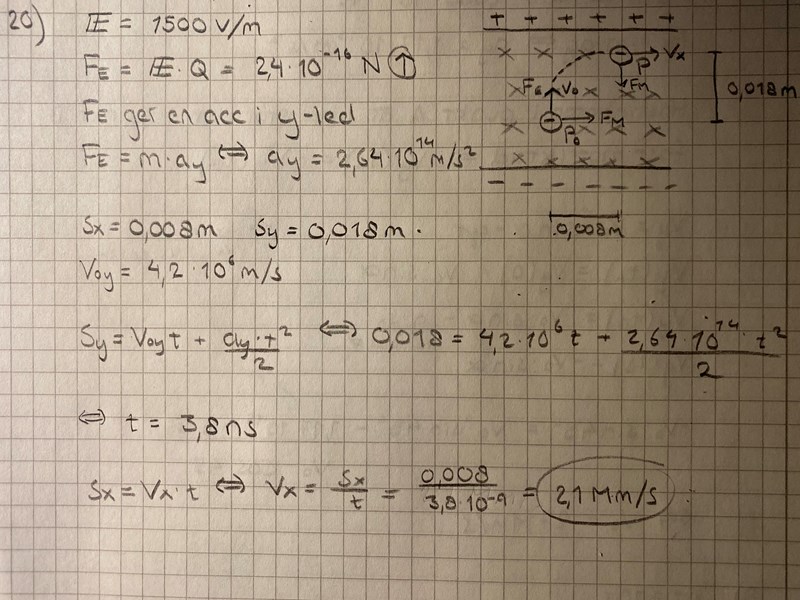 20)
E = 1500 V/m
F_E = E · Q = 2,4 · 10^-16 N ↑
F_E ger en acc i y-led
F_E = m · a_y ⇔ a_y = 2,64 · 10^14 m/s²
+ + + + + +
× × × − P → V_x
× F_E V_0 × F_M × 0,018 m
× − P_0 F_M × ×
× × × × ×
− − − − − −
0,008m
S_x = 0,008 m S_y = 0,018 m.
V_0y = 4,2 · 10^6 m/s
S_y = V_0y t + a_y · t²/2 ⇔ 0,018 = 4,2 · 10^6 t + 2,64 · 10^14 · t²/2
⇔ t = 3,8 ns
S_x = V_x · t ⇔ V_x = S_x/t = 0,008/3,8 · 10^-9 = 2,1 Mm/s